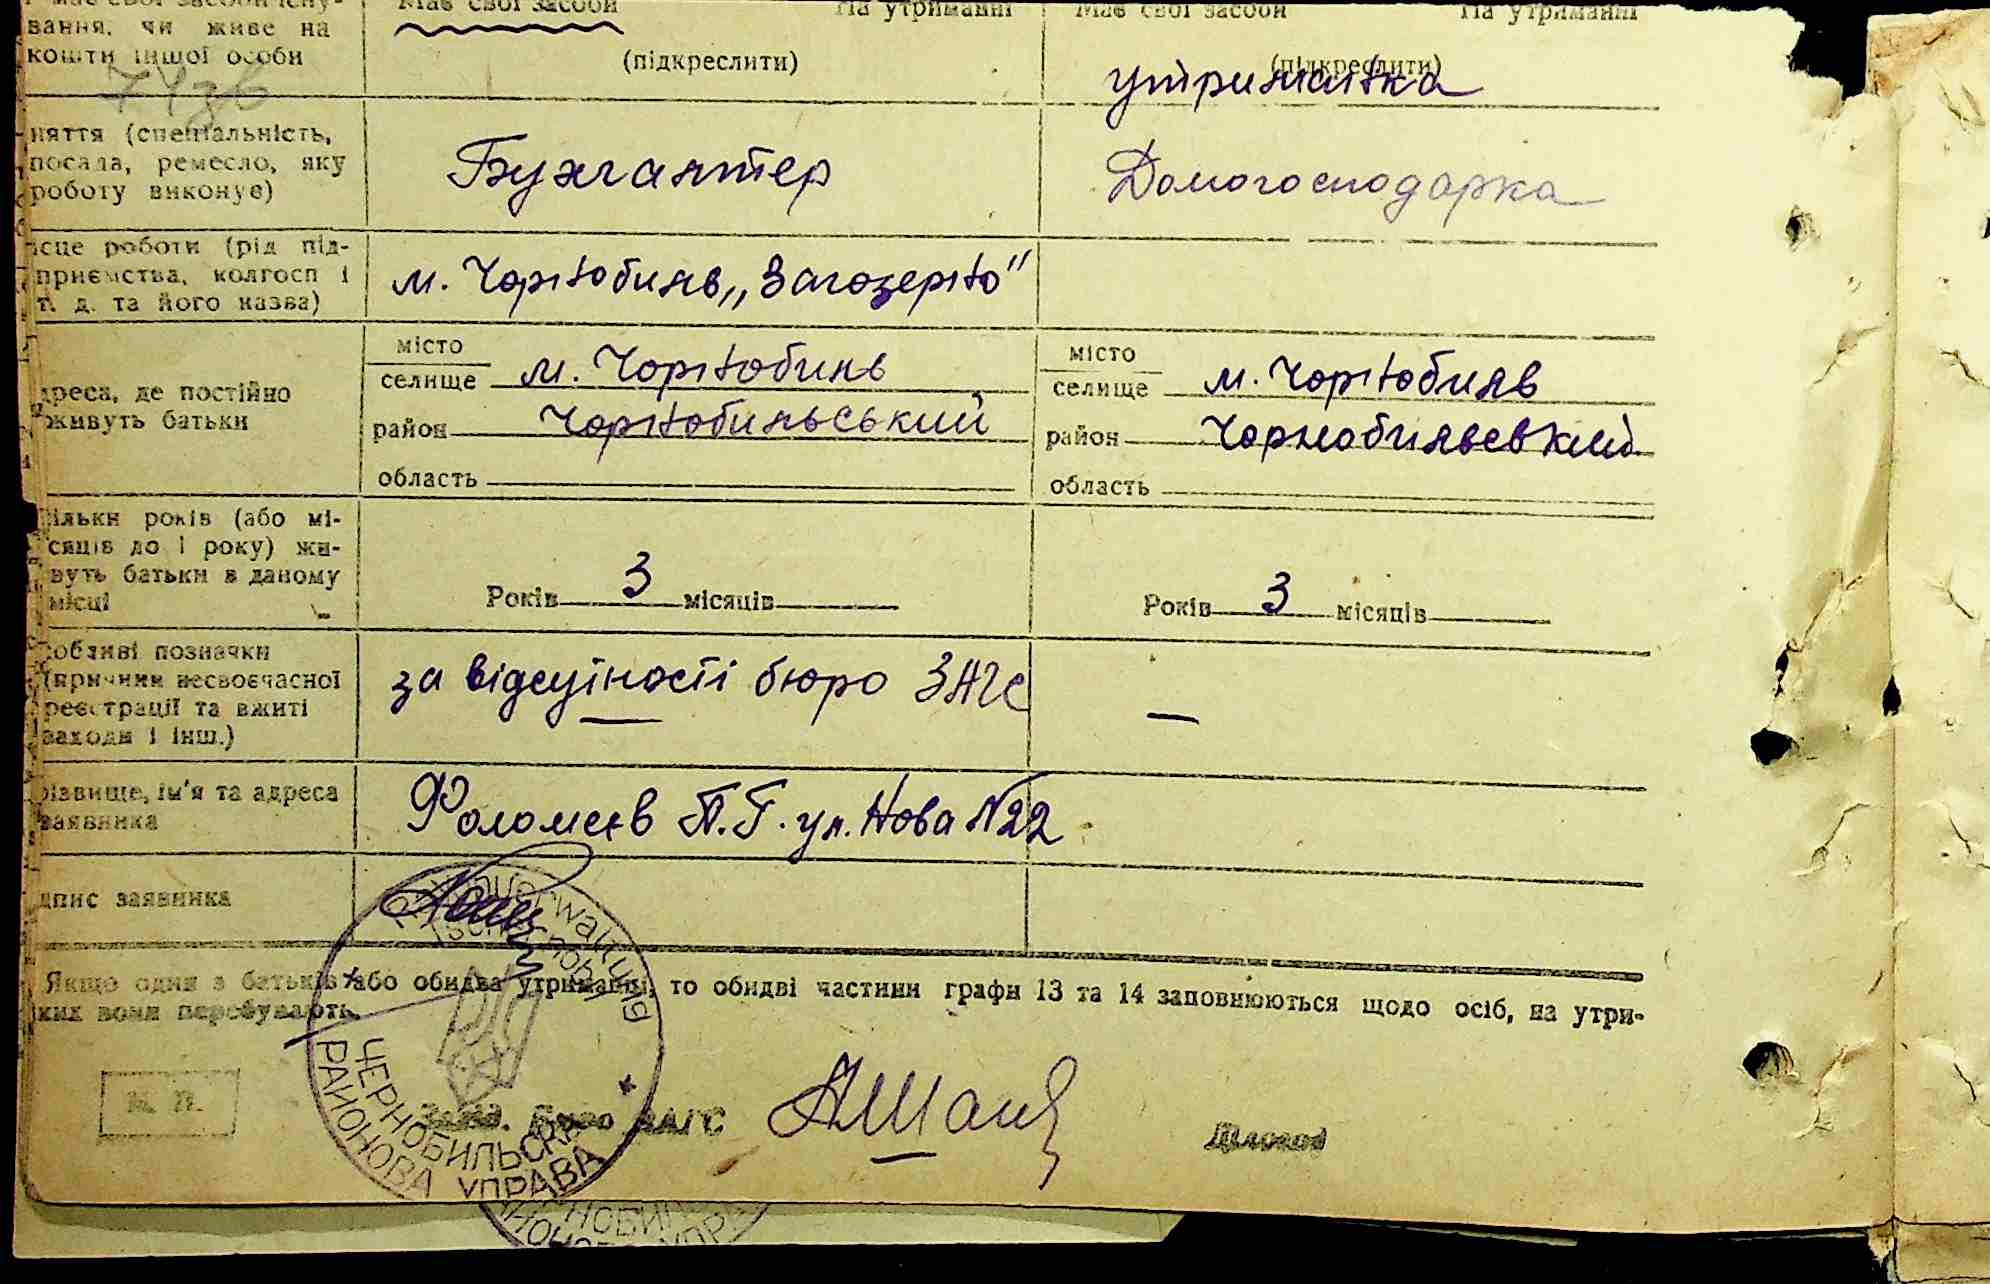 має свої засоби існу-
вання, чи живе на
кошти іншої особи
Має свої засоби На утриманні
(підкреслити)
Має свої засоби На утриманні
(підкреслити)
утриманка
няття (спеціальність,
посада, ремесло, яку
роботу виконує)
Бухгалтер
Домогосподарка
ісце роботи (рід під-
приємства, колгосп і
т. д. та його назва)
м. Чорнобиль „Заготзерно"
дреса, де постійно
оживуть батьки
місто
селище м. Чорнобиль
район Чорнобильський
область
місто
селище м. Чорнобиль
район Чорнобильський
область
кільки років (або мі-
сяців до 1 року) жи-
вуть батьки в даному
місці
Років 3 місяців
Років 3 місяців
собливі позначки
(причини несвоєчасної
реєстрації та вжиті
заходи і інш.)
за відсутності бюро ЗАГС
—
різвище, ім'я та адреса
заявника
Фоломеєв П.Г. ул. Нова №22
дпис заявника
Якщо один з батьків або обидва утриманці, то обидві частини графи 13 та 14 заповнюються щодо осіб, на утри-
ких вони перебувають.
М. П.
Зав. Бюро ЗАГС
Діловод
ЧЕРНОБИЛЬСКА
РАЙОНОВА УПРАВА